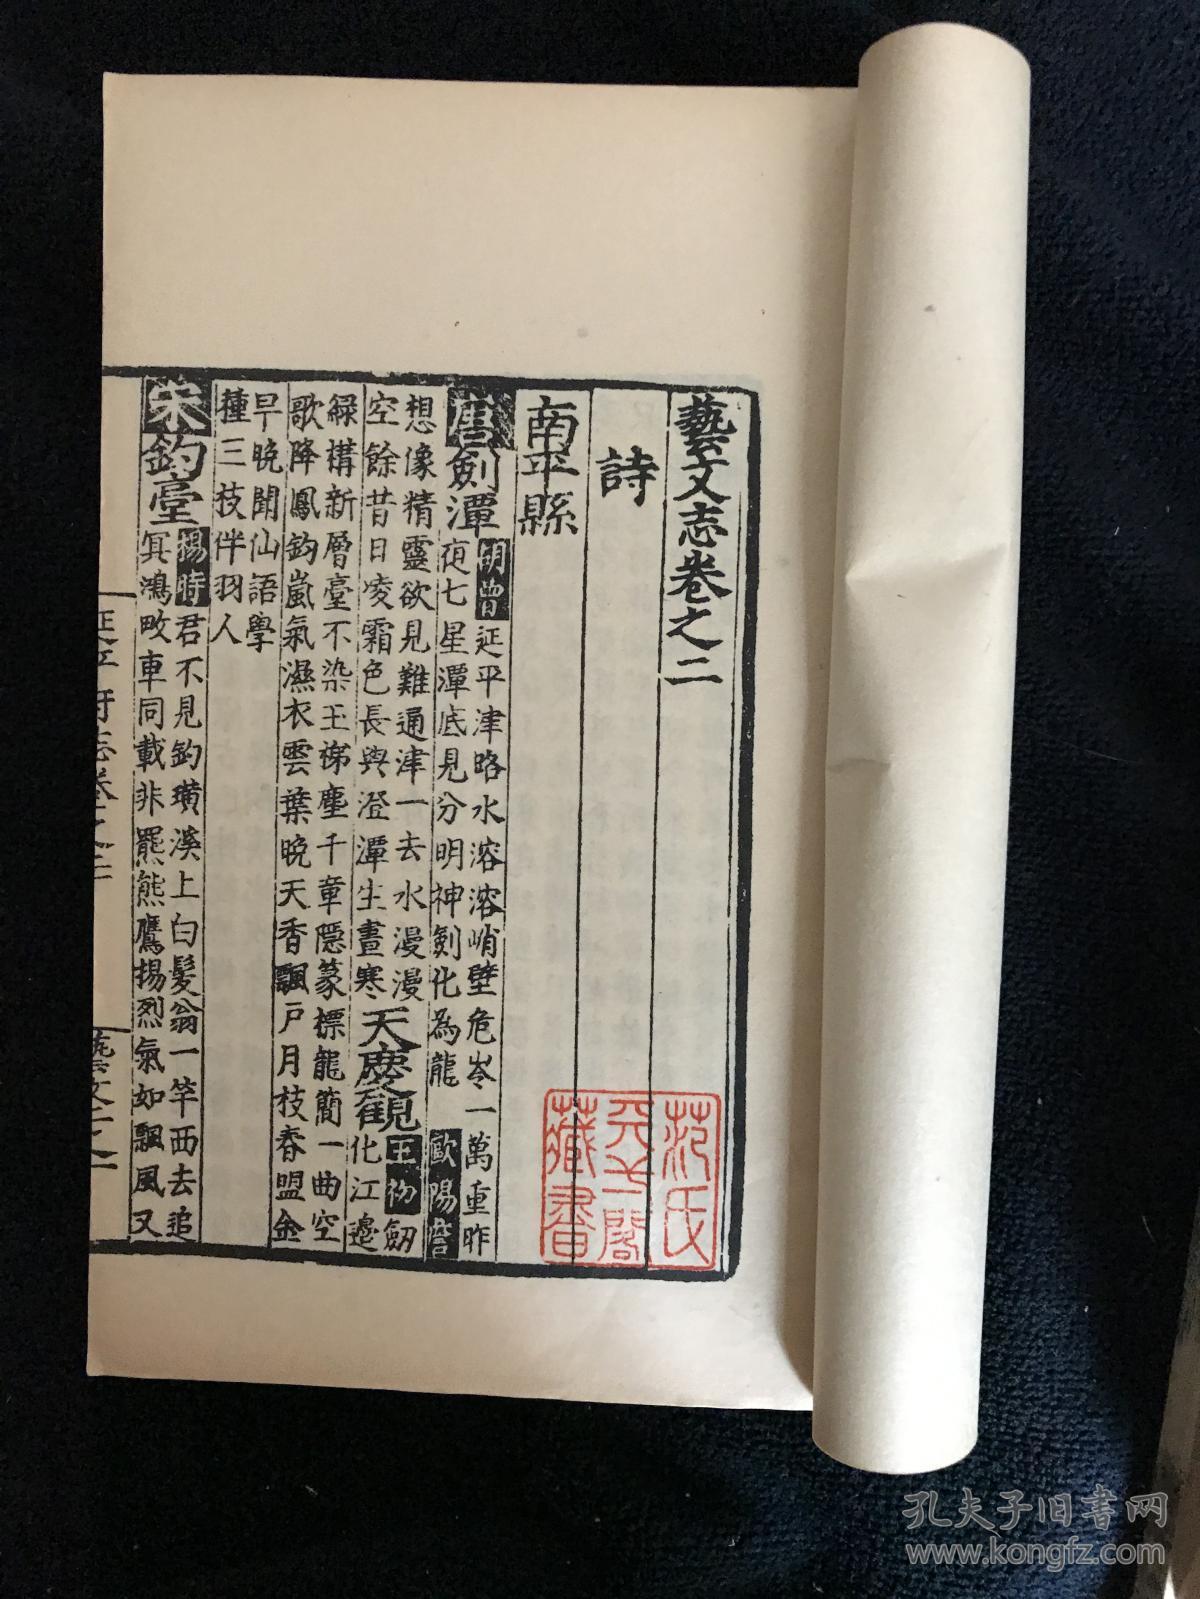 藝文志卷之二
詩
南平縣
唐劍潭
胡曾延平津路水溶溶峭壁危岑一萬重昨
夜七星潭底見分明神劍化為龍 歐陽詹
想像精靈欲見難通津一去水漫漫
空餘昔日凌霜色長與澄潭生晝寒
天慶觀
王礿劒
化江邊
綠構新層臺不染玉梯塵千章隱篆標龍簡一曲空
歌降鳳鈞嵐氣濕衣雲葉晚天香飄戶月枝春盟金
早晚聞仙語學
種三枝伴羽人
宋釣臺
楊時君不見釣璜溪上白髮翁一竿西去追
冥鴻畋車同載非羆熊鷹揚烈氣如飄風又
延平府志卷之二
藝文二之一
范氏
天一閣
藏書
孔夫子旧书网
www.kongfz.com